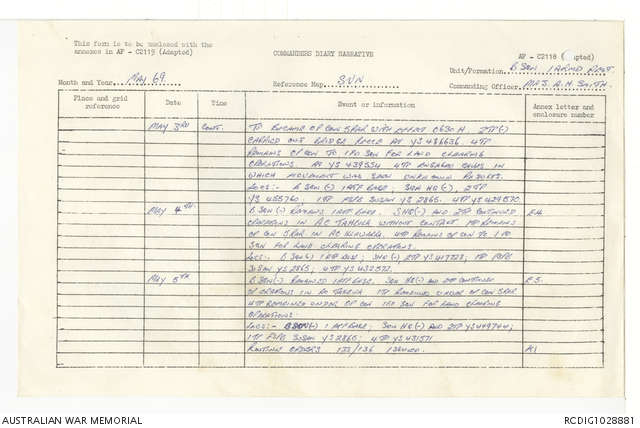 This form is to be enclosed with the
annexes in AF - C2119 (Adapted)
COMMANDERS DIARY NARRATIVE
AF - C2118 (Adapted)
Unit/Formation B SQN 1 ARMD REGT
Month and Year MAY 69
Reference Map SVN
Commanding Officer MAJ. A.H. SMITH
Place and grid reference
Date
Time
Event or information
Annex letter and enclosure number
MAY 3RD CONT. TO RESUME OP CON 5RAR WITH EFFECT 0630H. 2TP(-)
CARRIED OUT BRIDGE RECCE AT YS 486636. 4TP
REMAINS OP CON TO 1 FD SQN FOR LAND CLEARING
OPERATIONS. AT YS 439554 4TP ENGAGED
WHICH MOVEMENT WAS SEEN UNKNOWN RESULTS.
LOCS:- B SQN (-) 1ATF BASE; SQN HQ (-), 2TP
YS 455760. 1TP FSPB SUSAN YS 2865. 4TP YS 429570
MAY 4TH B SQN (-) REMAINS 1ATF BASE. SHQ (-) AND 2TP CONTINUED
OPERATIONS IN AO TAMERNA WITHOUT CONTACT. 1TP REMAINS
OP CON 5RAR IN AO ILLAWARRA. 4TP REMAINS OP CON TO 1 FD
SQN FOR LAND CLEARING OPERATIONS.
LOCS:- B SQN (-) 1ATF BASE; SHQ (-) 2TP YS 447728; 1TP FSPB
SUSAN YS 2865; 4TP YS 432572.
MAY 5TH B SQN (-) REMAINED 1ATF BASE. SQN HQ (-) AND 2TP CONTINUED
OPERATIONS IN AO 1TP REMAINED UNDER OP CON 5RAR
4TP REMAINED UNDER OP CON 1 FD SQN FOR LAND CLEARING
OPERATIONS.
LOCS:- B SQN (-) 1 ATF BASE; SQN HQ (-) AND 2TP YS 449744;
1TP FSPB SUSAN YS 2865; 4TP YS 431571
ROUTINE ORDERS 135/136 ISSUED. A1
AUSTRALIAN WAR MEMORIAL
RCDIG1028881